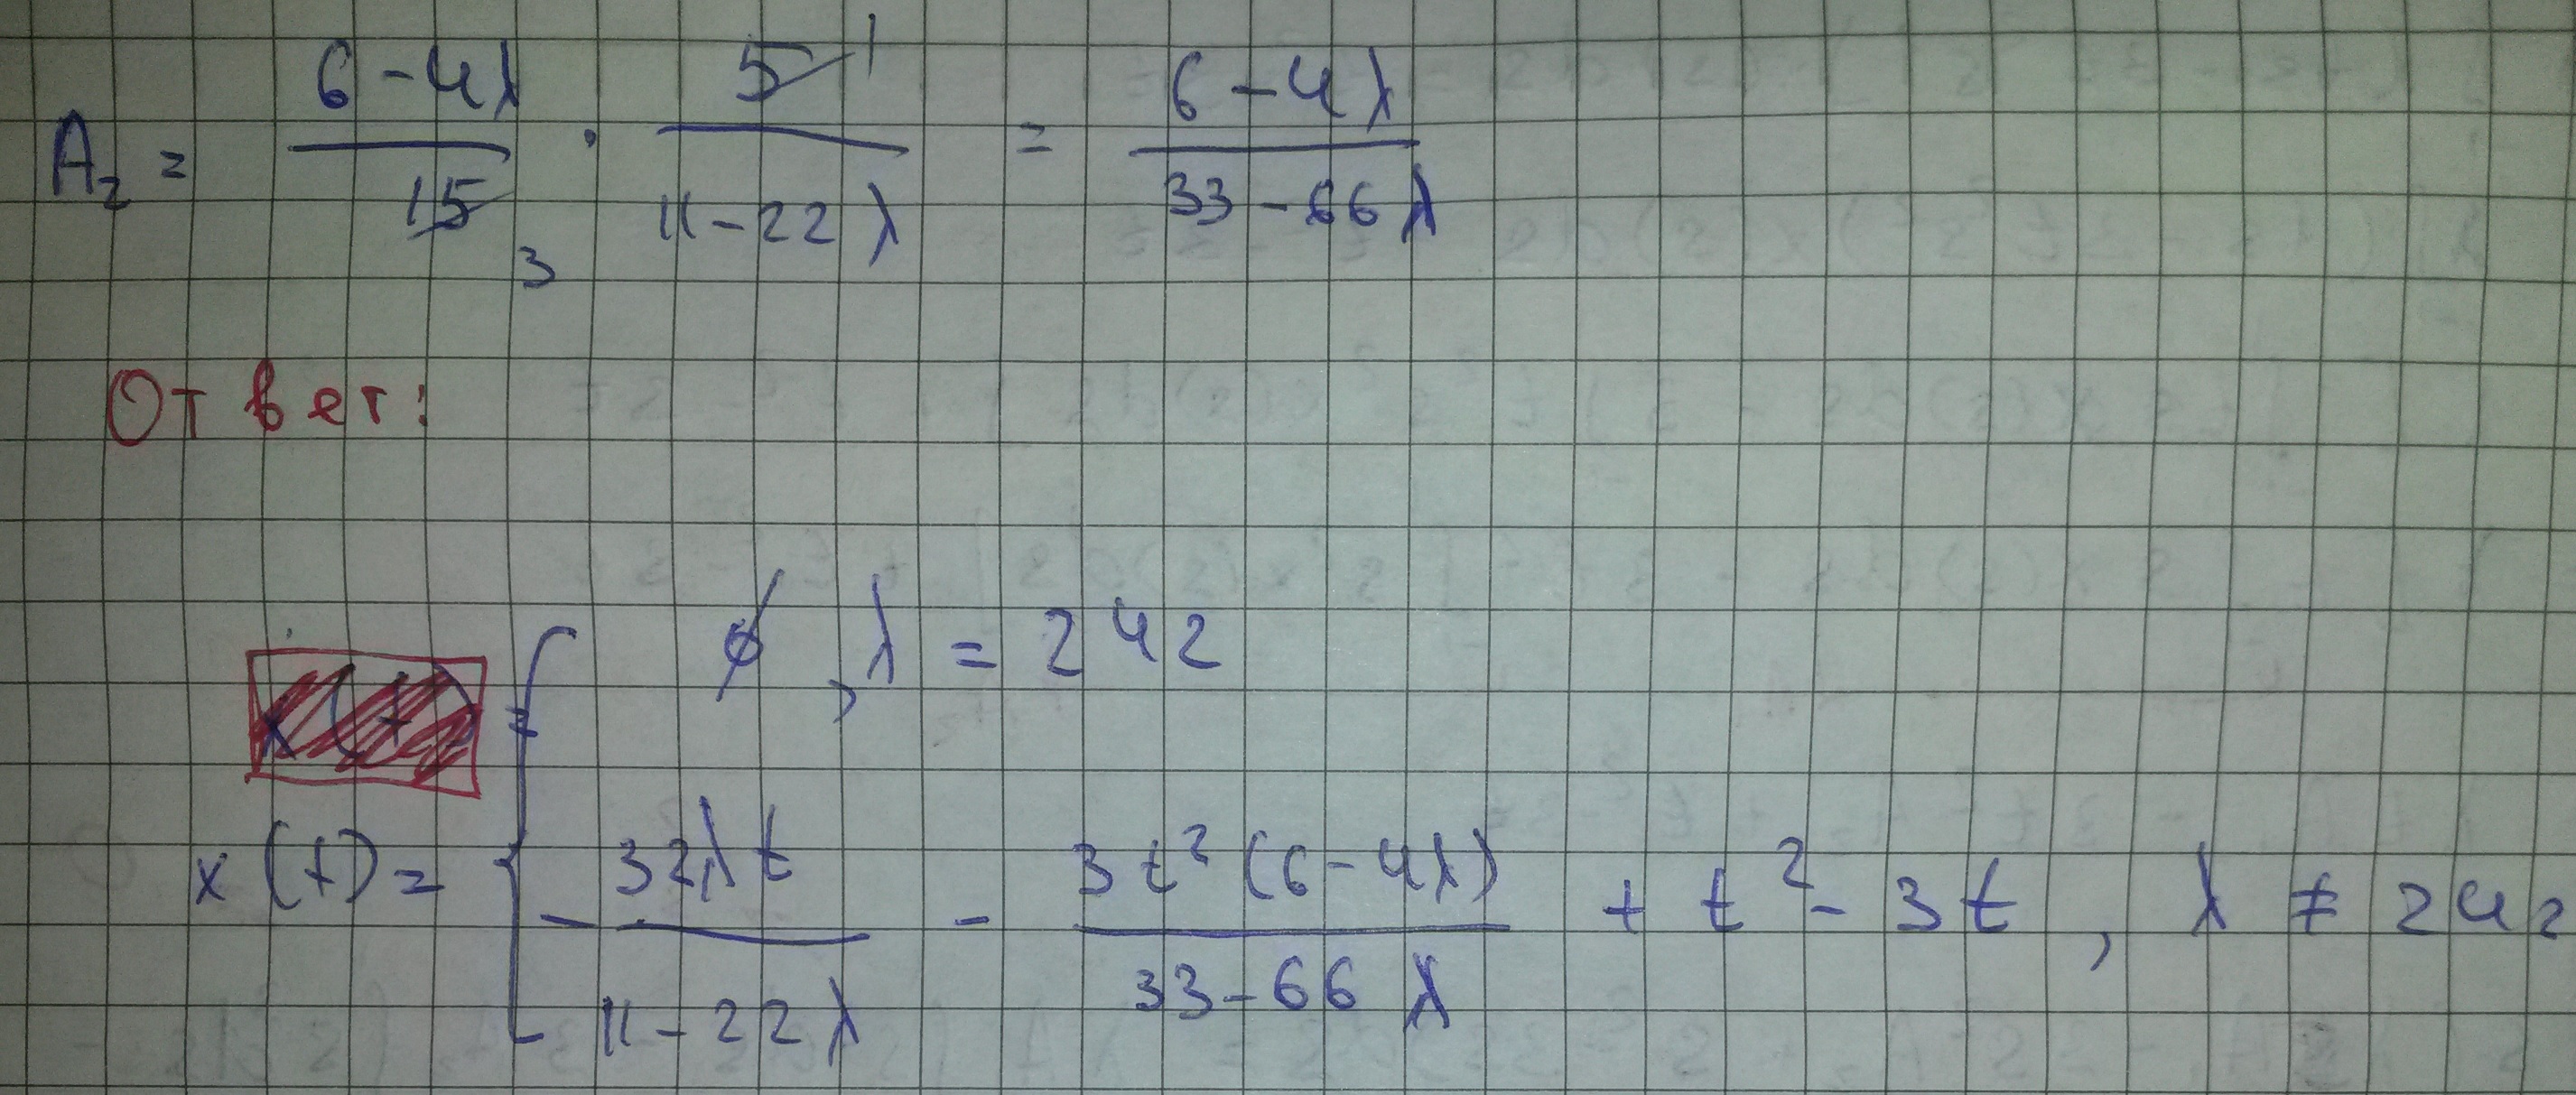 A₂ = (6 - 4λ)/15 3 · 5 1/(11 - 22λ) = (6 - 4λ)/(33 - 66λ)
Ответ:
∅, λ = 242
x(t) =
x(t) = { - 32λt/(11 - 22λ) - 3t²(6 - 4λ)/(33 - 66λ) + t² - 3t, λ ≠ 242